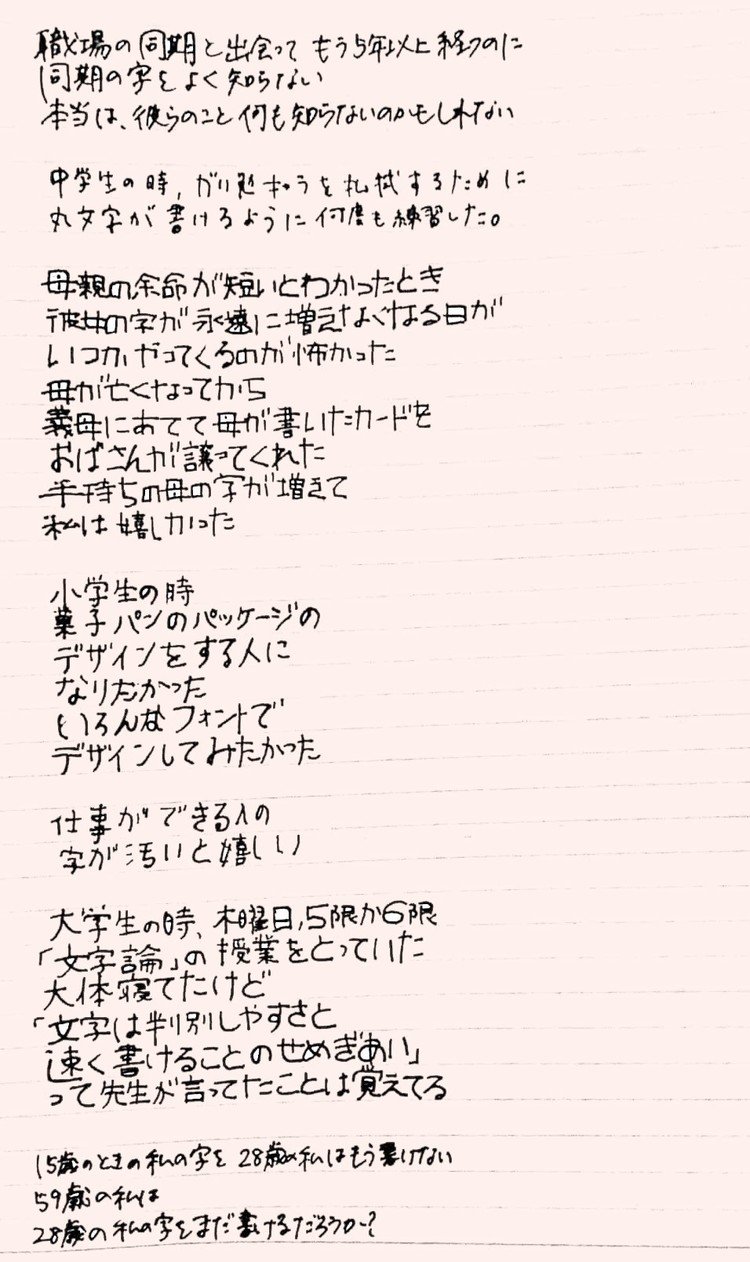 職場の同期と出会って もう5年以上経つのに
同期の字をよく知らない
本当は、彼らのこと何も知らないのかもしれない
中学生の時、ガリ勉キャラを払拭するために
丸文字が書けるように何度も練習した。
母親の余命が短いとわかったとき
彼女の字が永遠に増えなくなる日が
いつかやってくるのが怖かった
母が亡くなってから
義母にあてて母が書いたカードを
おばさんが譲ってくれた
手持ちの母の字が増えて
私は嬉しかった
小学生の時
菓子パンのパッケージの
デザインをする人に
なりたかった
いろんなフォントで
デザインしてみたかった
仕事ができる人の
字が汚いと嬉しい
大学生の時、木曜日、5限か6限
「文字論」の授業をとっていた
大体寝てたけど
「文字は判別しやすさと
速く書けることのせめぎあい」
って先生が言ってたことは覚えてる
15歳のときの私の字を 28歳の私はもう書けない
59歳の私は
28歳の私の字をまだ書けるだろうか?